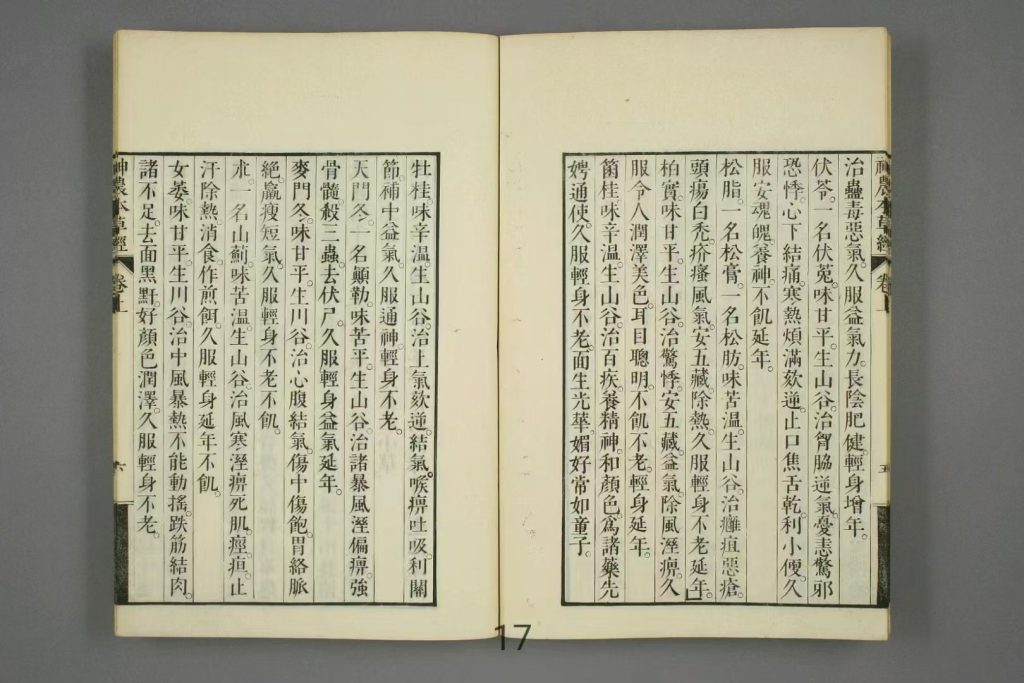 神農本草經 卷上 五
治蠱毒惡氣。久服益氣力。長陰肥健。輕身增年。
伏苓。一名伏菟。味甘平。生山谷。治胷脇逆氣。憂恚驚邪
恐悸。心下結痛。寒熱煩滿欬逆。止口焦舌乾。利小便。久
服安魂魄養神。不飢延年。
松脂。一名松膏。一名松肪。味苦溫。生山谷。治癰疽惡瘡。
頭瘍白禿。疥瘙風氣。安五藏。除熱。久服輕身不老延年。
柏實。味甘平。生山谷。治驚悸。安五藏。益氣。除風溼痹。久
服令人潤澤美色。耳目聰明。不飢不老。輕身延年。
箘桂。味辛溫。生山谷。治百疾。養精神。和顏色。爲諸藥先
娉通使。久服輕身不老。面生光華。媚好常如童子。
牡桂。味辛溫。生山谷。治上氣欬逆。結氣。喉痹吐吸。利關
節。補中益氣。久服通神。輕身不老。
天門冬。一名顚勒。味苦平。生山谷。治諸暴風溼偏痹。強
骨髓。殺三蟲。去伏尸。久服輕身益氣延年。
麥門冬。味甘平。生川谷。治心腹結氣。傷中傷飽。胃絡脈
絕。羸瘦短氣。久服輕身不老不飢。
朮。一名山薊。味苦溫。生山谷。治風寒溼痹死肌。痙疸。止
汗除熱。消食。作煎餌。久服輕身延年不飢。
女萎。味甘平。生川谷。治中風暴熱。不能動搖。跌筋結肉。
諸不足。去面黑䵟。好顏色潤澤。久服輕身不老。
神農本草經 卷上 六
17